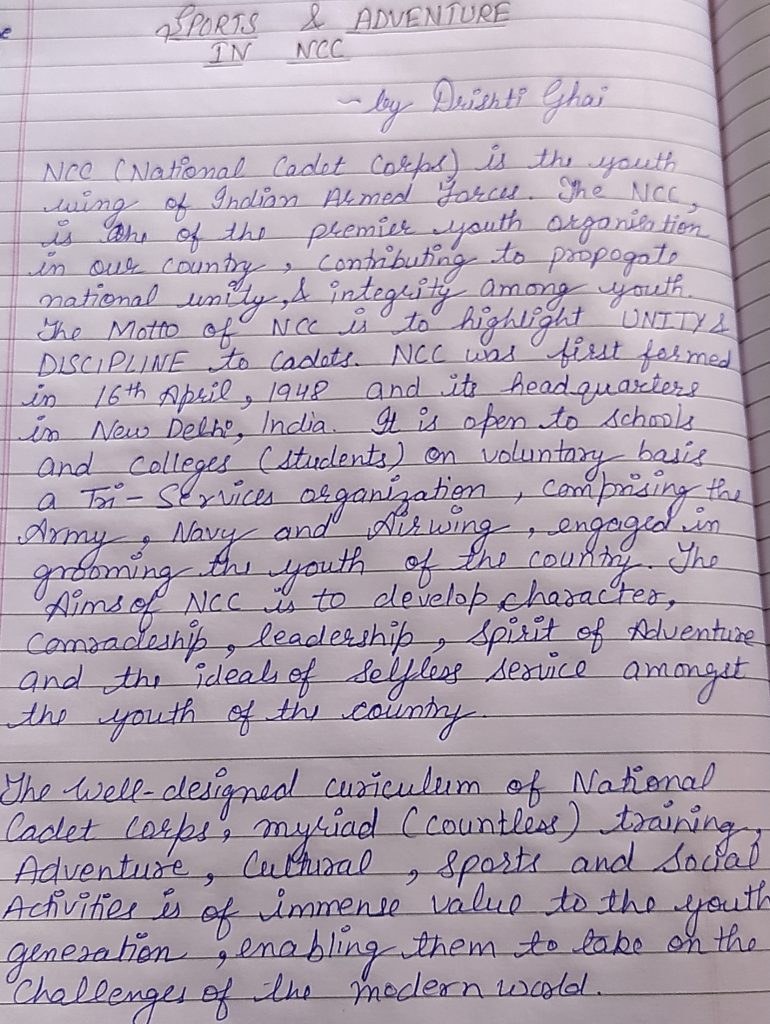 SPORTS & ADVENTURE
IN NCC
- by Drishti Ghai
NCC (National Cadet Corps) is the youth
wing of Indian Armed Forces. The NCC,
is One of the premier youth organisation
in our country, contributing to propogate
national unity, & integrity among youth.
The Motto of NCC is to highlight UNITY &
DISCIPLINE to Cadets. NCC was first formed
in 16th April, 1948 and its headquarters
in New Delhi, India. It is open to schools
and colleges (students) on voluntary basis
a Tri-Services organization, comprising the
Army, Navy and Airwing, engaged in
grooming the youth of the country. The
Aims of NCC is to develop character,
comradeship, leadership, spirit of Adventure
and the ideals of selfless service amongst
the youth of the country.
The well-designed curiculum of National
Cadet Corps, myriad (countless) training,
Adventure, Cultural, sports and Social
Activities is of immense value to the youth
generation, enabling them to take on the
Challenges of the modern world.